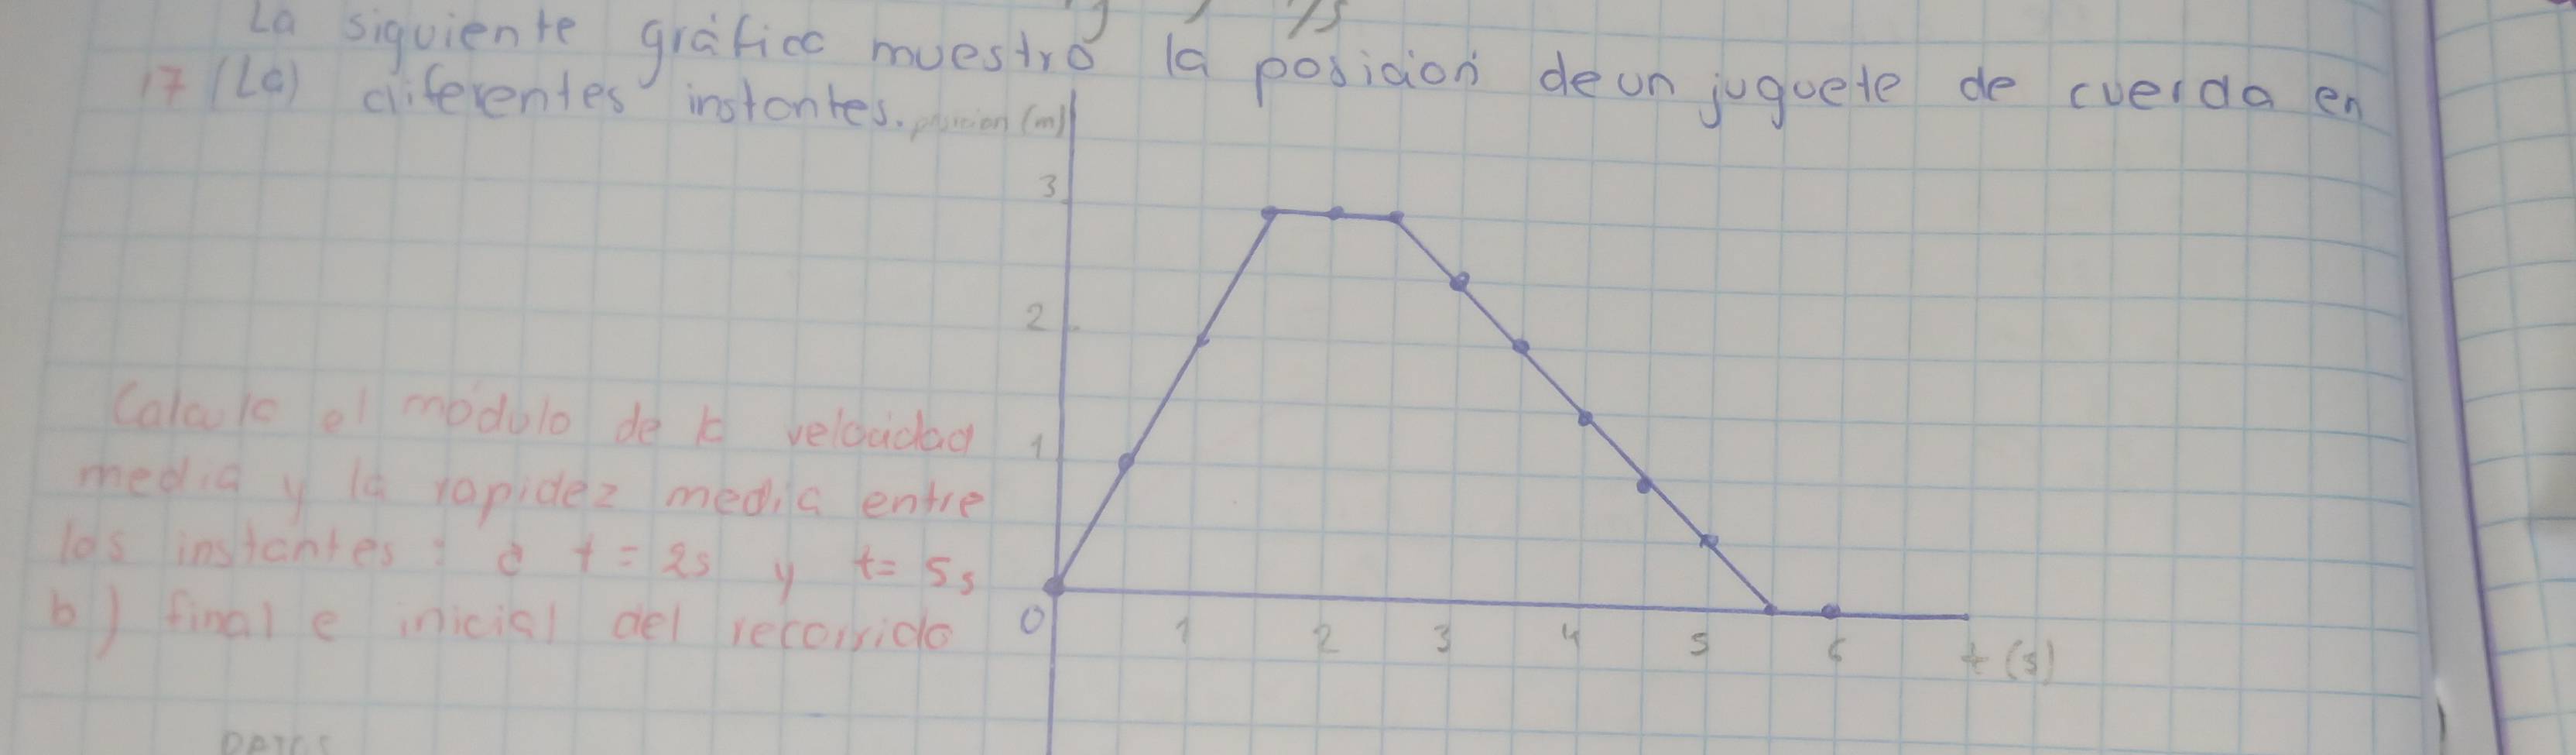 La siguiente gráfica muestra la posición de un juguete de cuerda en
17 (La) diferentes instantes. posicion (m)
3
2
Calcule el módulo de la velocidad
1
media y la rapidez media entre
los instantes: a t = 2s y t = 5s
b) final e inicial del recorrido
0 1 2 3 4 5 6 t (s)
DATOS